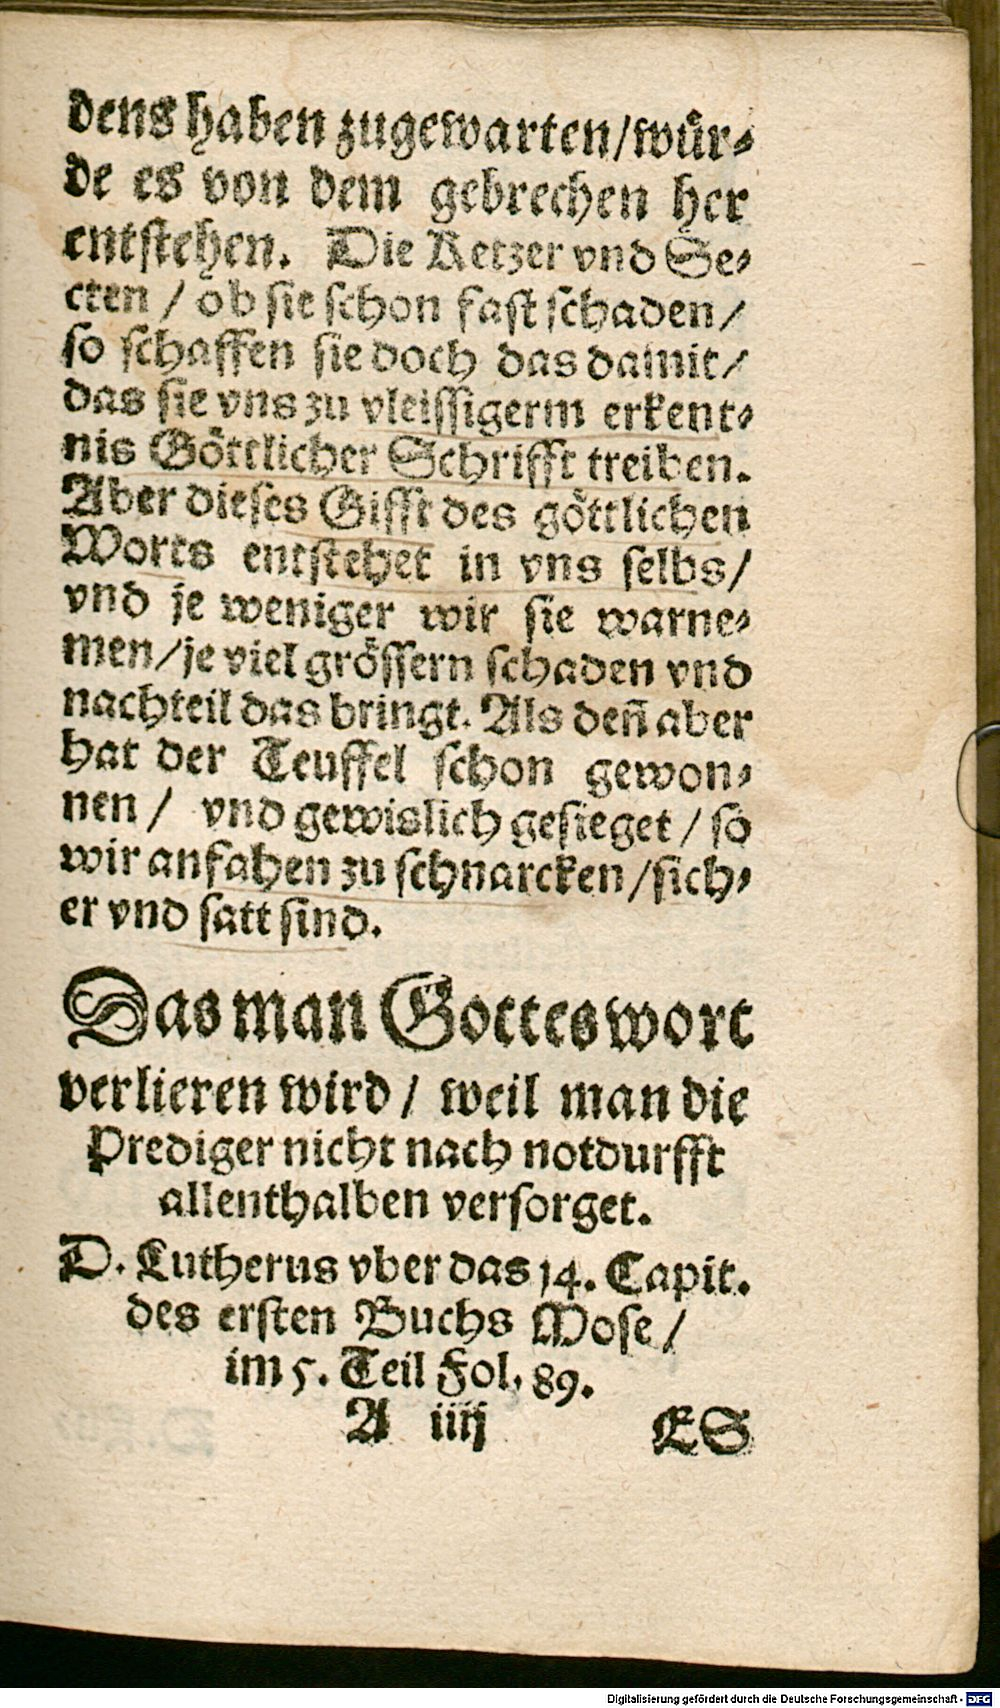 dens haben zugewarten/wür⸗
de es von dem gebrechen her
entstehen. Die Ketzer vnd Se⸗
cten / ob sie schon fast schaden/
so schaffen sie doch das damit/
das sie vns zu vleissigerm erkent⸗
nis Göttlicher Schrifft treiben.
Aber dieses Gifft des göttlichen
Worts entstehet in vns selbs/
vnd je weniger wir sie warne⸗
men/je viel grössern schaden vnd
nachteil das bringt. Als deñ aber
hat der Teuffel schon gewon⸗
nen / vnd gewislich gesieget / so
wir anfahen zu schnarcken/sich⸗
er vnd satt sind.
Das man Gottes wort
verlieren wird/ weil man die
Prediger nicht nach notdurfft
allenthalben versorget.
D. Lutherus vber das 14. Capit.
des ersten Buchs Mose/
im 5. Teil Fol. 89.
A iiij ES
Digitalisierung gefördert durch die Deutsche Forschungsgemeinschaft - DFG